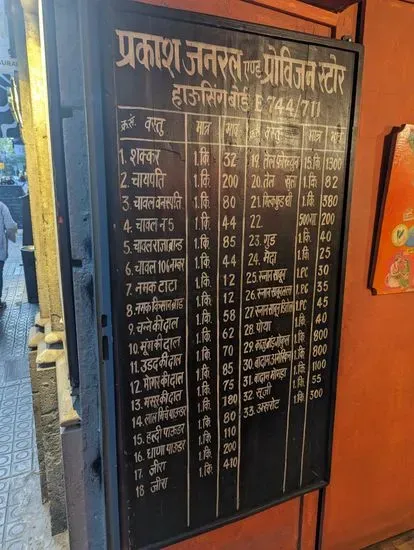 प्रकाश जनरल एण्ड प्रोविजन स्टोर
हाऊसिंग बोर्ड E 744/711
क्र.सं. वस्तु मात्र भाव
1. शक्कर 1.कि 32
2. चायपति 1.कि 200
3. चावल वनस्पति 1.कि 80
4. चावल नं 5 1.कि 44
5. चावल राजा ब्रान्ड 1.कि 85
6. चावल 106 नम्बर 1.कि 44
7. नमक टाटा 1.कि 12
8. नमक किसान ब्रान्ड 1.कि 12
9. चने की दाल 1.कि 58
10. मूंग की दाल 1.कि 62
11. उडद की दाल 1.कि 70
12. मोगर की दाल 1.कि 85
13. मसूर की दाल 1.कि 75
14. लाल मिर्च पाउडर 1.कि 180
15. हल्दी पाउडर 1.कि 80
16. धाणा पाउडर 1.कि 110
17. जीरा 1.कि 200
18 जीरा 1.कि 410
मात्र भाव
19. तेल 15 कि 1300
20. तेल 1.कि 82
21. 1.कि 380
22. 500ML 200
23. गुड 1.कि 40
24. मैदा 1.कि 25
25. स्नान साबुन 1.PC 30
26. स्नान साबुन 1.PC 35
27. स्नान साबुन 1.PC 45
28. पोया 1.कि 40
29. काजू 1.कि 800
30. बादाम 1.कि 800
31. बादाम 1.कि 1100
32. सूजी 1.कि 55
33. 1.कि 300